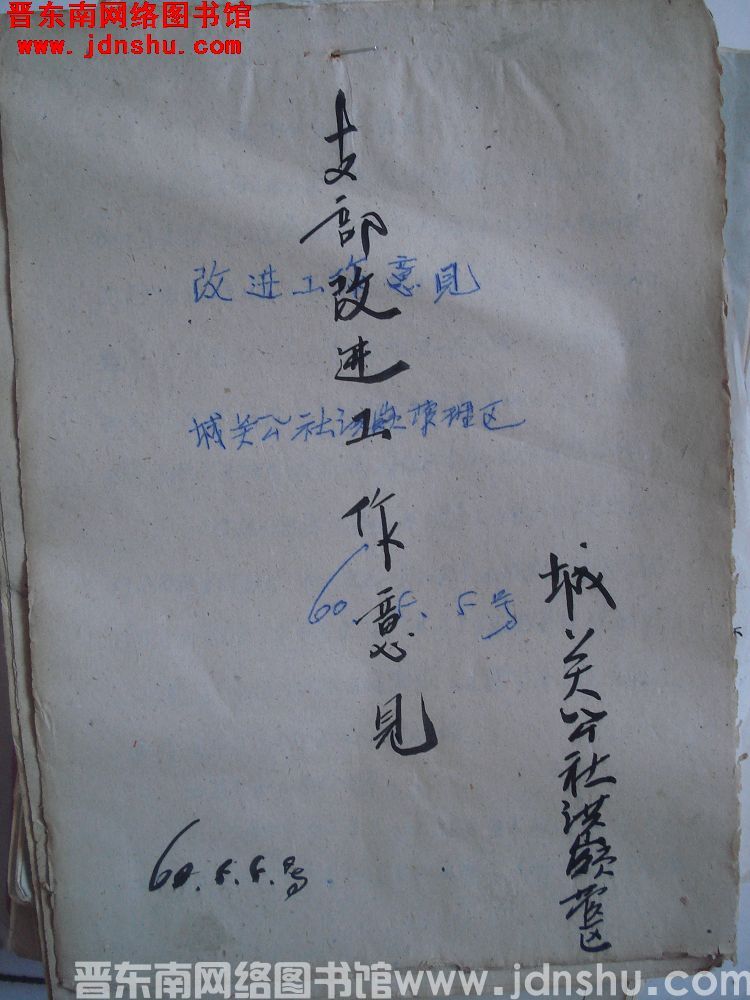 晋东南网络图书馆
www.jdnshu.com
支部改进工作意见
改进工作意见
城关公社洪嶺管理区
60.5.5号
城关公社洪嶺管区
60.5.5.号
晋东南网络图书馆www.jdnshu.com